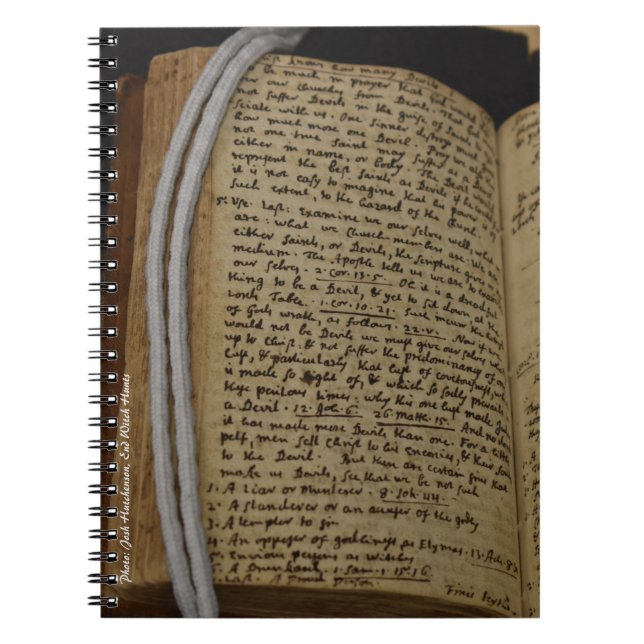 Christ knows how many Devils
to be much in prayer that God would
our Churches from Devils. That God
not suffer Devils in the guise of Saints to
sociate with us. One Sinner destroys much
how much more one Devil. Pray we also
not one true Saint may suffer as a Devil
either in name, or body. The Devil would
represent the best Saints as Devils if he could
it is not easy to imagine that his power is of
such extent, to the hazard of the Church.
5. Vse. Last: Examine we our selves well, what
are: what we Church-members are: We are
either Saints, or Devils, the Scripture gives no
medium. The Apostle tells us we are to examine
our selves. 2. Cor. 13. 5. Oh it is a dreadful
thing to be a Devil, & yet to sit down at the
Lords Table. 1. Cor. 10. 21. Such incur the
of Gods wrath, as follows. 22. v. Now if we
would not be Devils we must give our selves
up to Christ, & not suffer the predominancy of one
lust, & particularly that lust of covetousness, wch
is made so light of, & which so sadly prevails
these perilous times: why this one lust made Judas
a Devil. 12. Joh. 6. 26. Matth. 15. And no
it has made more Devils than one. For a little
pelf, men sell Christ to his enemies, & their Souls
to the Devil. But there are certain sins that
make us Devils, see that we be not such
1. A Liar or Murderer. 8. Joh. 44.
2. A slanderer or an accuser of the godly
3. A tempter to sin
4. An opposer of godliness as Elymas. 13. Act. 8
5. Envious persons as witches
6. A Drunkard. 1. Sam. 1. 15. 16.
Last. A proud person.
Finis
Photo: Josh Hutchenson, End Witch Hunts